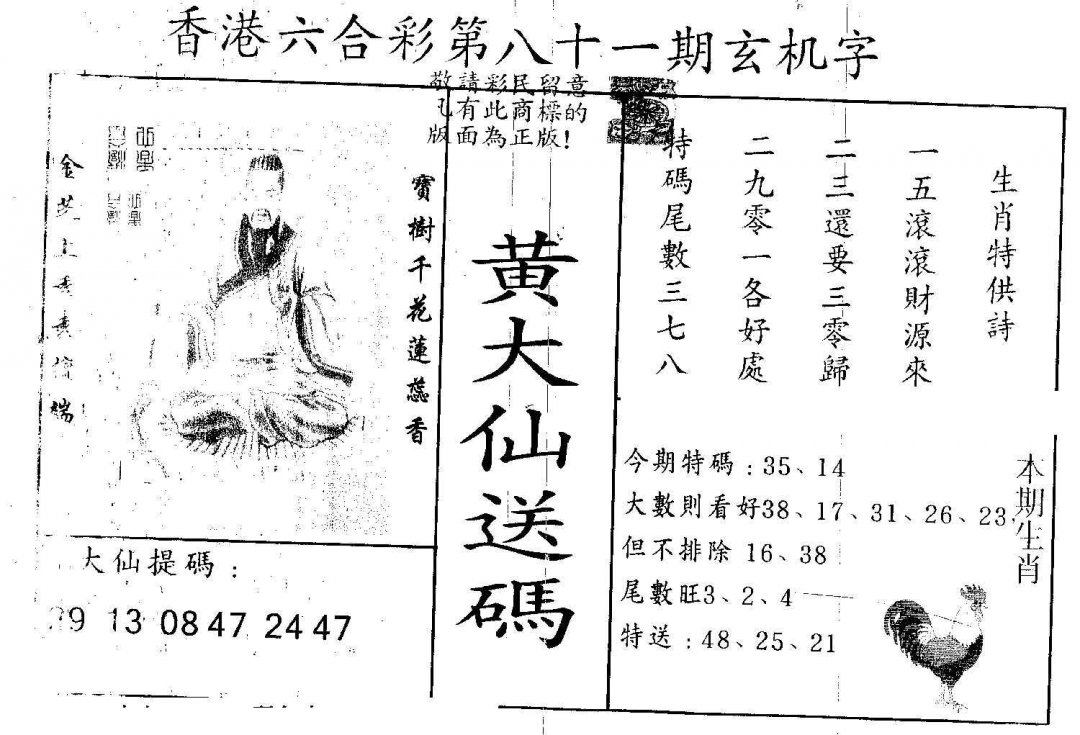 香港六合彩第八十一期玄机字
敬請彩民留意
有此商標的
版面為正版!
生肖特供詩
一五滾滾財源來
二三還要三零歸
二九零一各好處
特碼尾數三七八
黃大仙送碼
寶樹千花蓮蕊香
金芝上
端
今期特碼:35、14
大數則看好38、17、31、26、23
但不排除 16、38
尾數旺3、2、4
特送:48、25、21
本期生肖
大仙提碼:
9 13 08 47 24 47